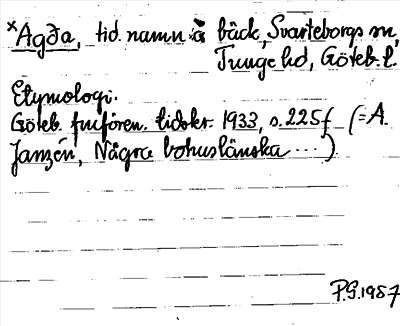 *Agða, tid. namn å bäck, Svarteborgs sn,
Tunge hd, Göteb. l.
Etymologi.
Göteb. fucfören. tidskr. 1933, s. 225f (= A.
Janzén, Några bohuslänska ....)
P.G. 1957